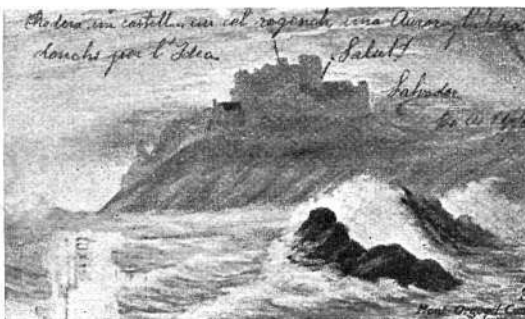 un castell, un cel rogench, una Aurora, l'Idea
donchs per l'Idea. Salut!
Salvador
Mont Orgueil